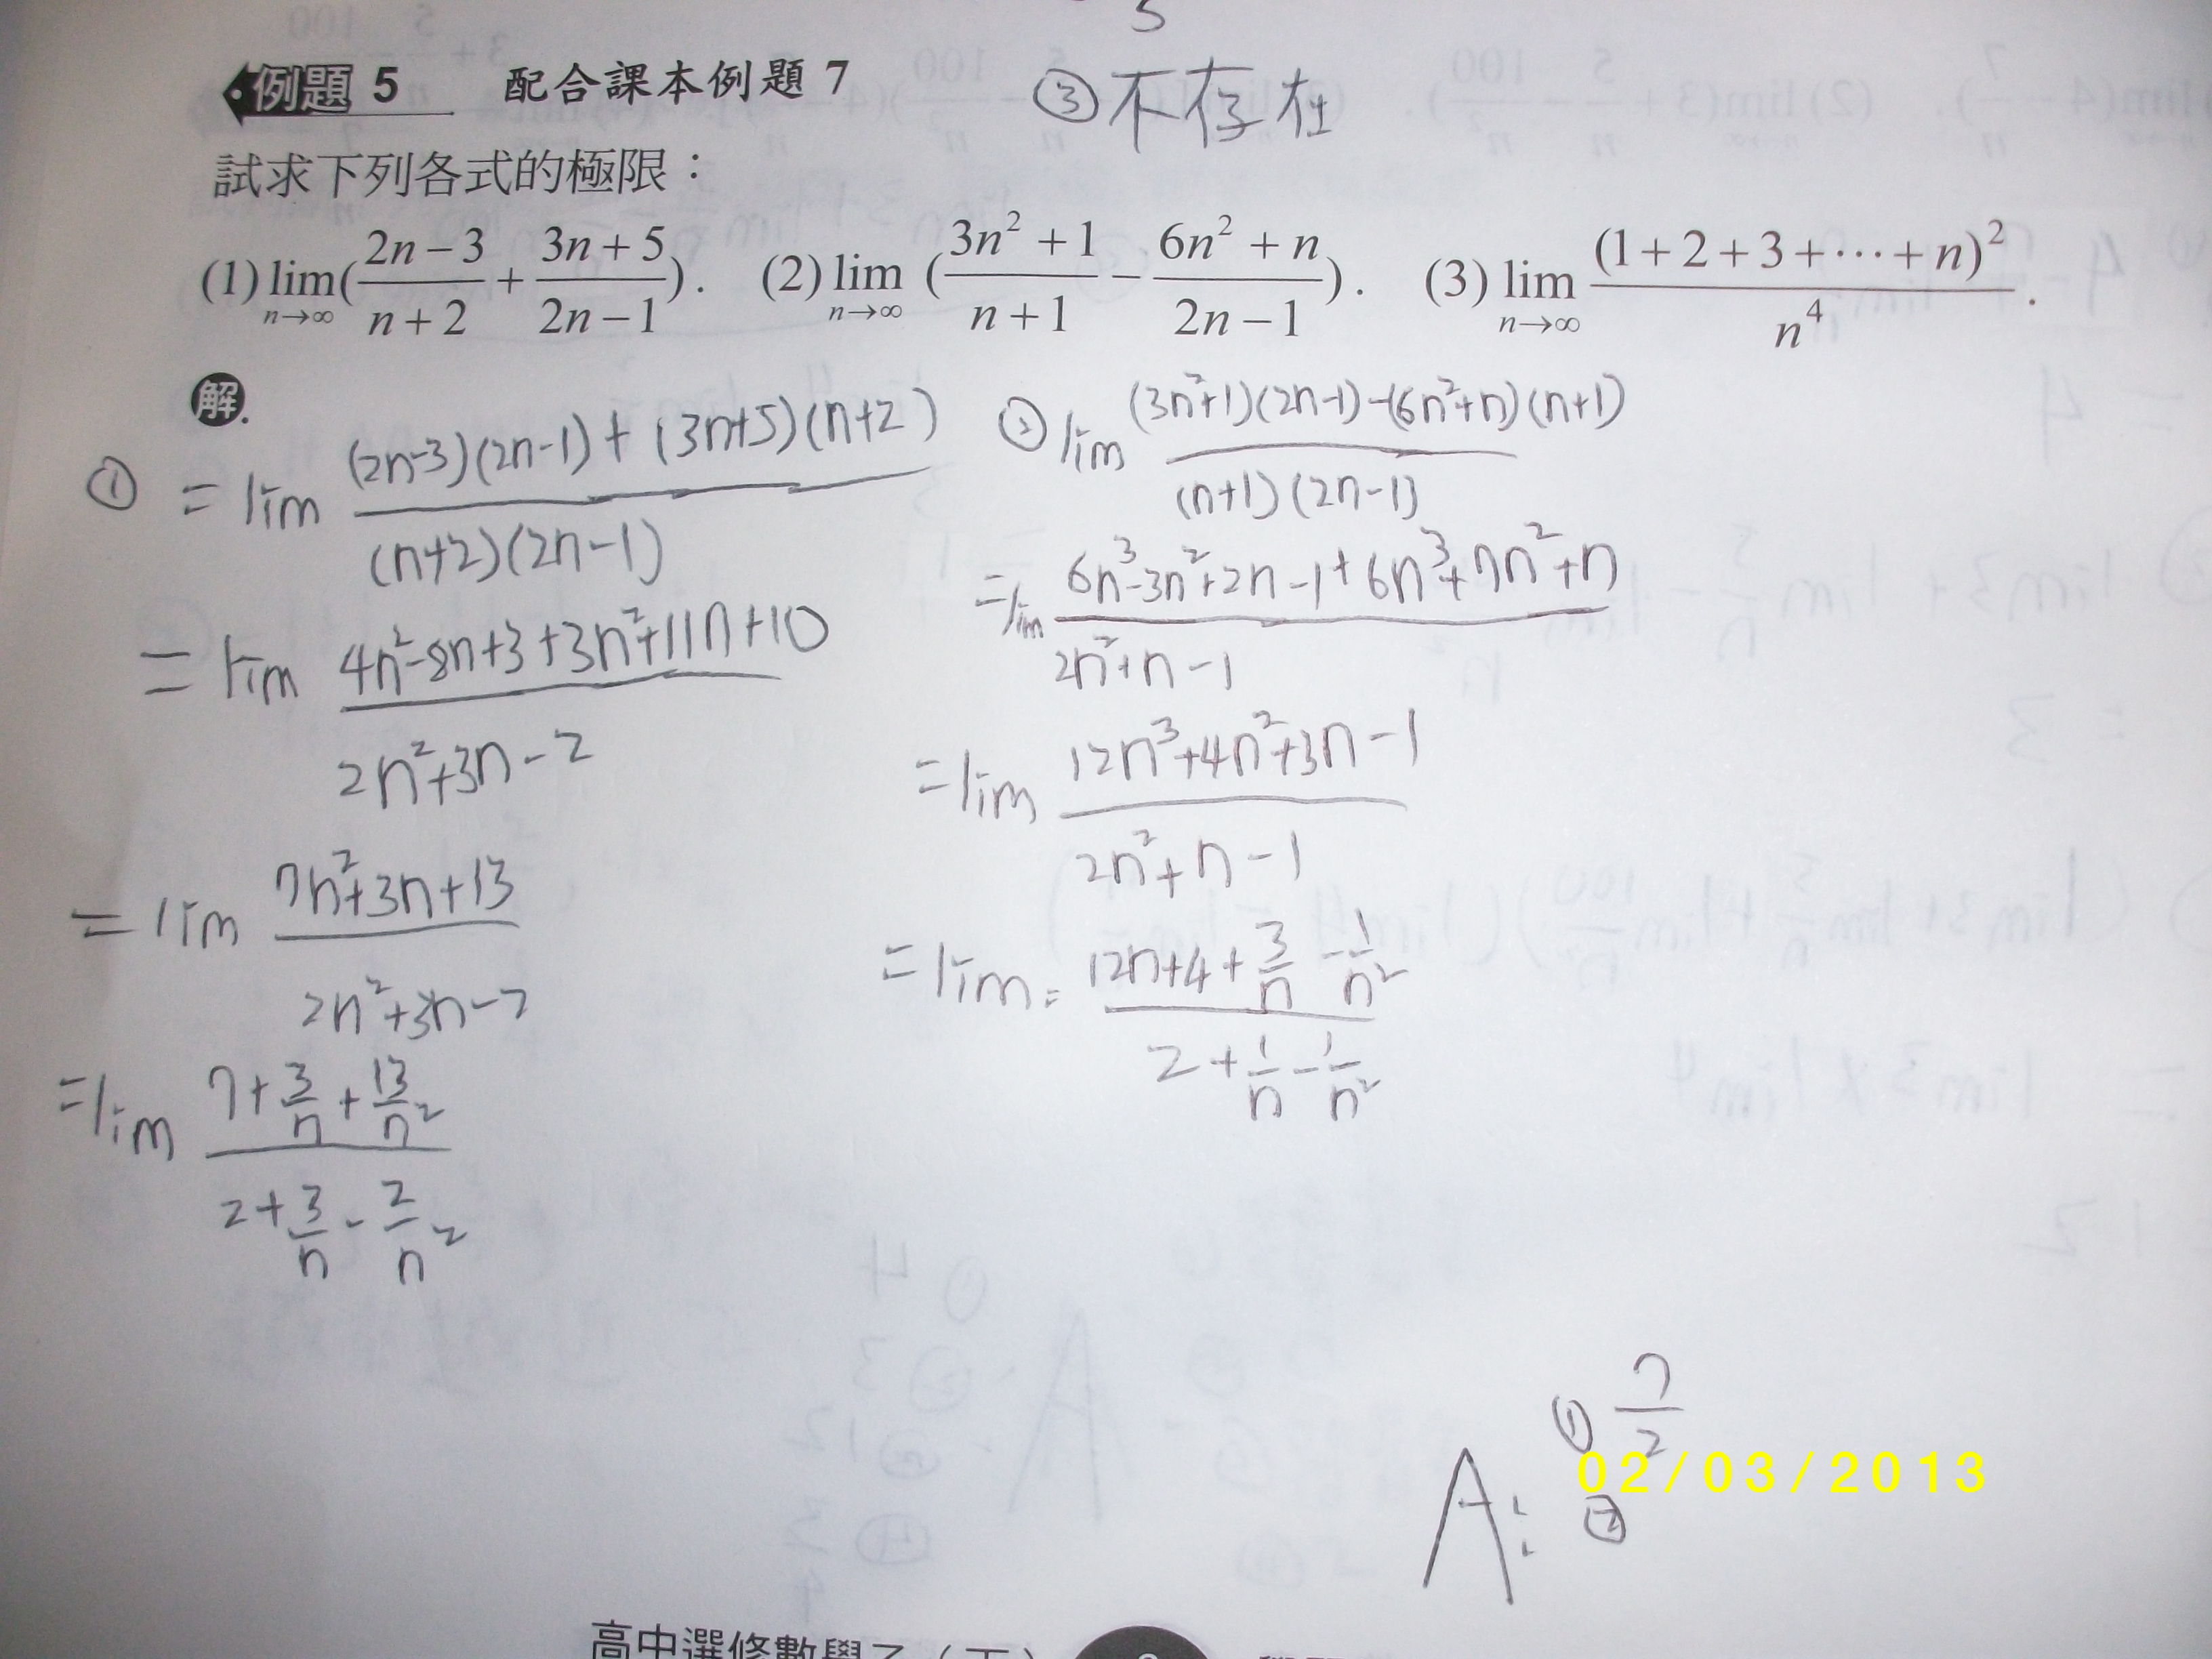 5
例題 5 配合課本例題 7
③不存在
試求下列各式的極限：
(1) lim n→∞ ( (2n−3)/(n+2) + (3n+5)/(2n−1) ). (2) lim n→∞ ( (3n²+1)/(n+1) − (6n²+n)/(2n−1) ). (3) lim n→∞ (1+2+3+⋯+n)²/n⁴ .
解.
① = lim ((2n-3)(2n-1)+(3n+5)(n+2))/((n+2)(2n-1))
= lim (4n²-8n+3+3n²+11n+10)/(2n²+3n-2)
= lim (7n²+3n+13)/(2n²+3n-2)
= lim (7+3/n+13/n²)/(2+3/n-2/n²)
② lim ((3n²+1)(2n-1)-(6n²+n)(n+1))/((n+1)(2n-1))
= lim (6n³-3n²+2n-1+6n³+7n²+n)/(2n²+n-1)
= lim (12n³+4n²+3n-1)/(2n²+n-1)
= lim = (12n+4+3/n-1/n²)/(2+1/n-1/n²)
A: ① 7/2
②
02/03/2013
高中選修數學乙（下）